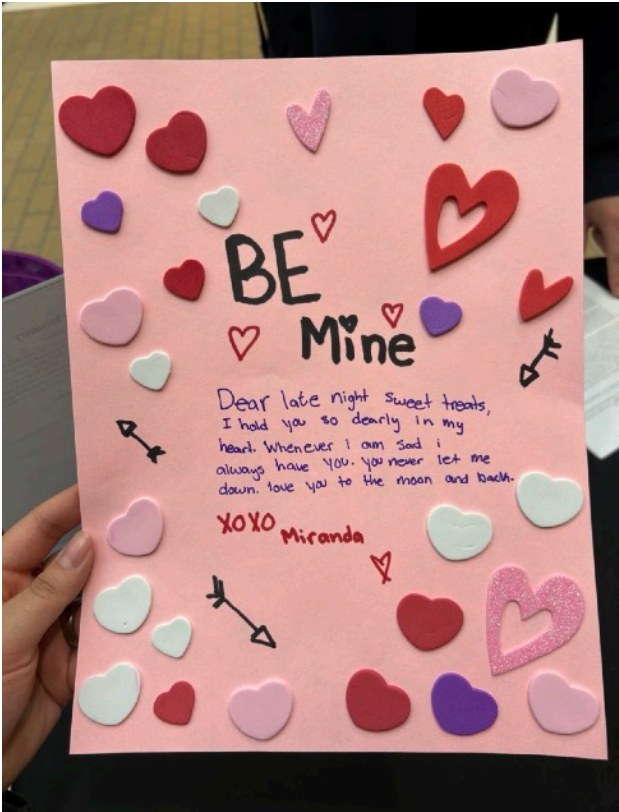 BE
Mine
Dear late night sweet treats,
I hold you so dearly in my
heart. Whenever i am sad i
always have you. you never let me
down. love you to the moon and back.
XOXO
Miranda